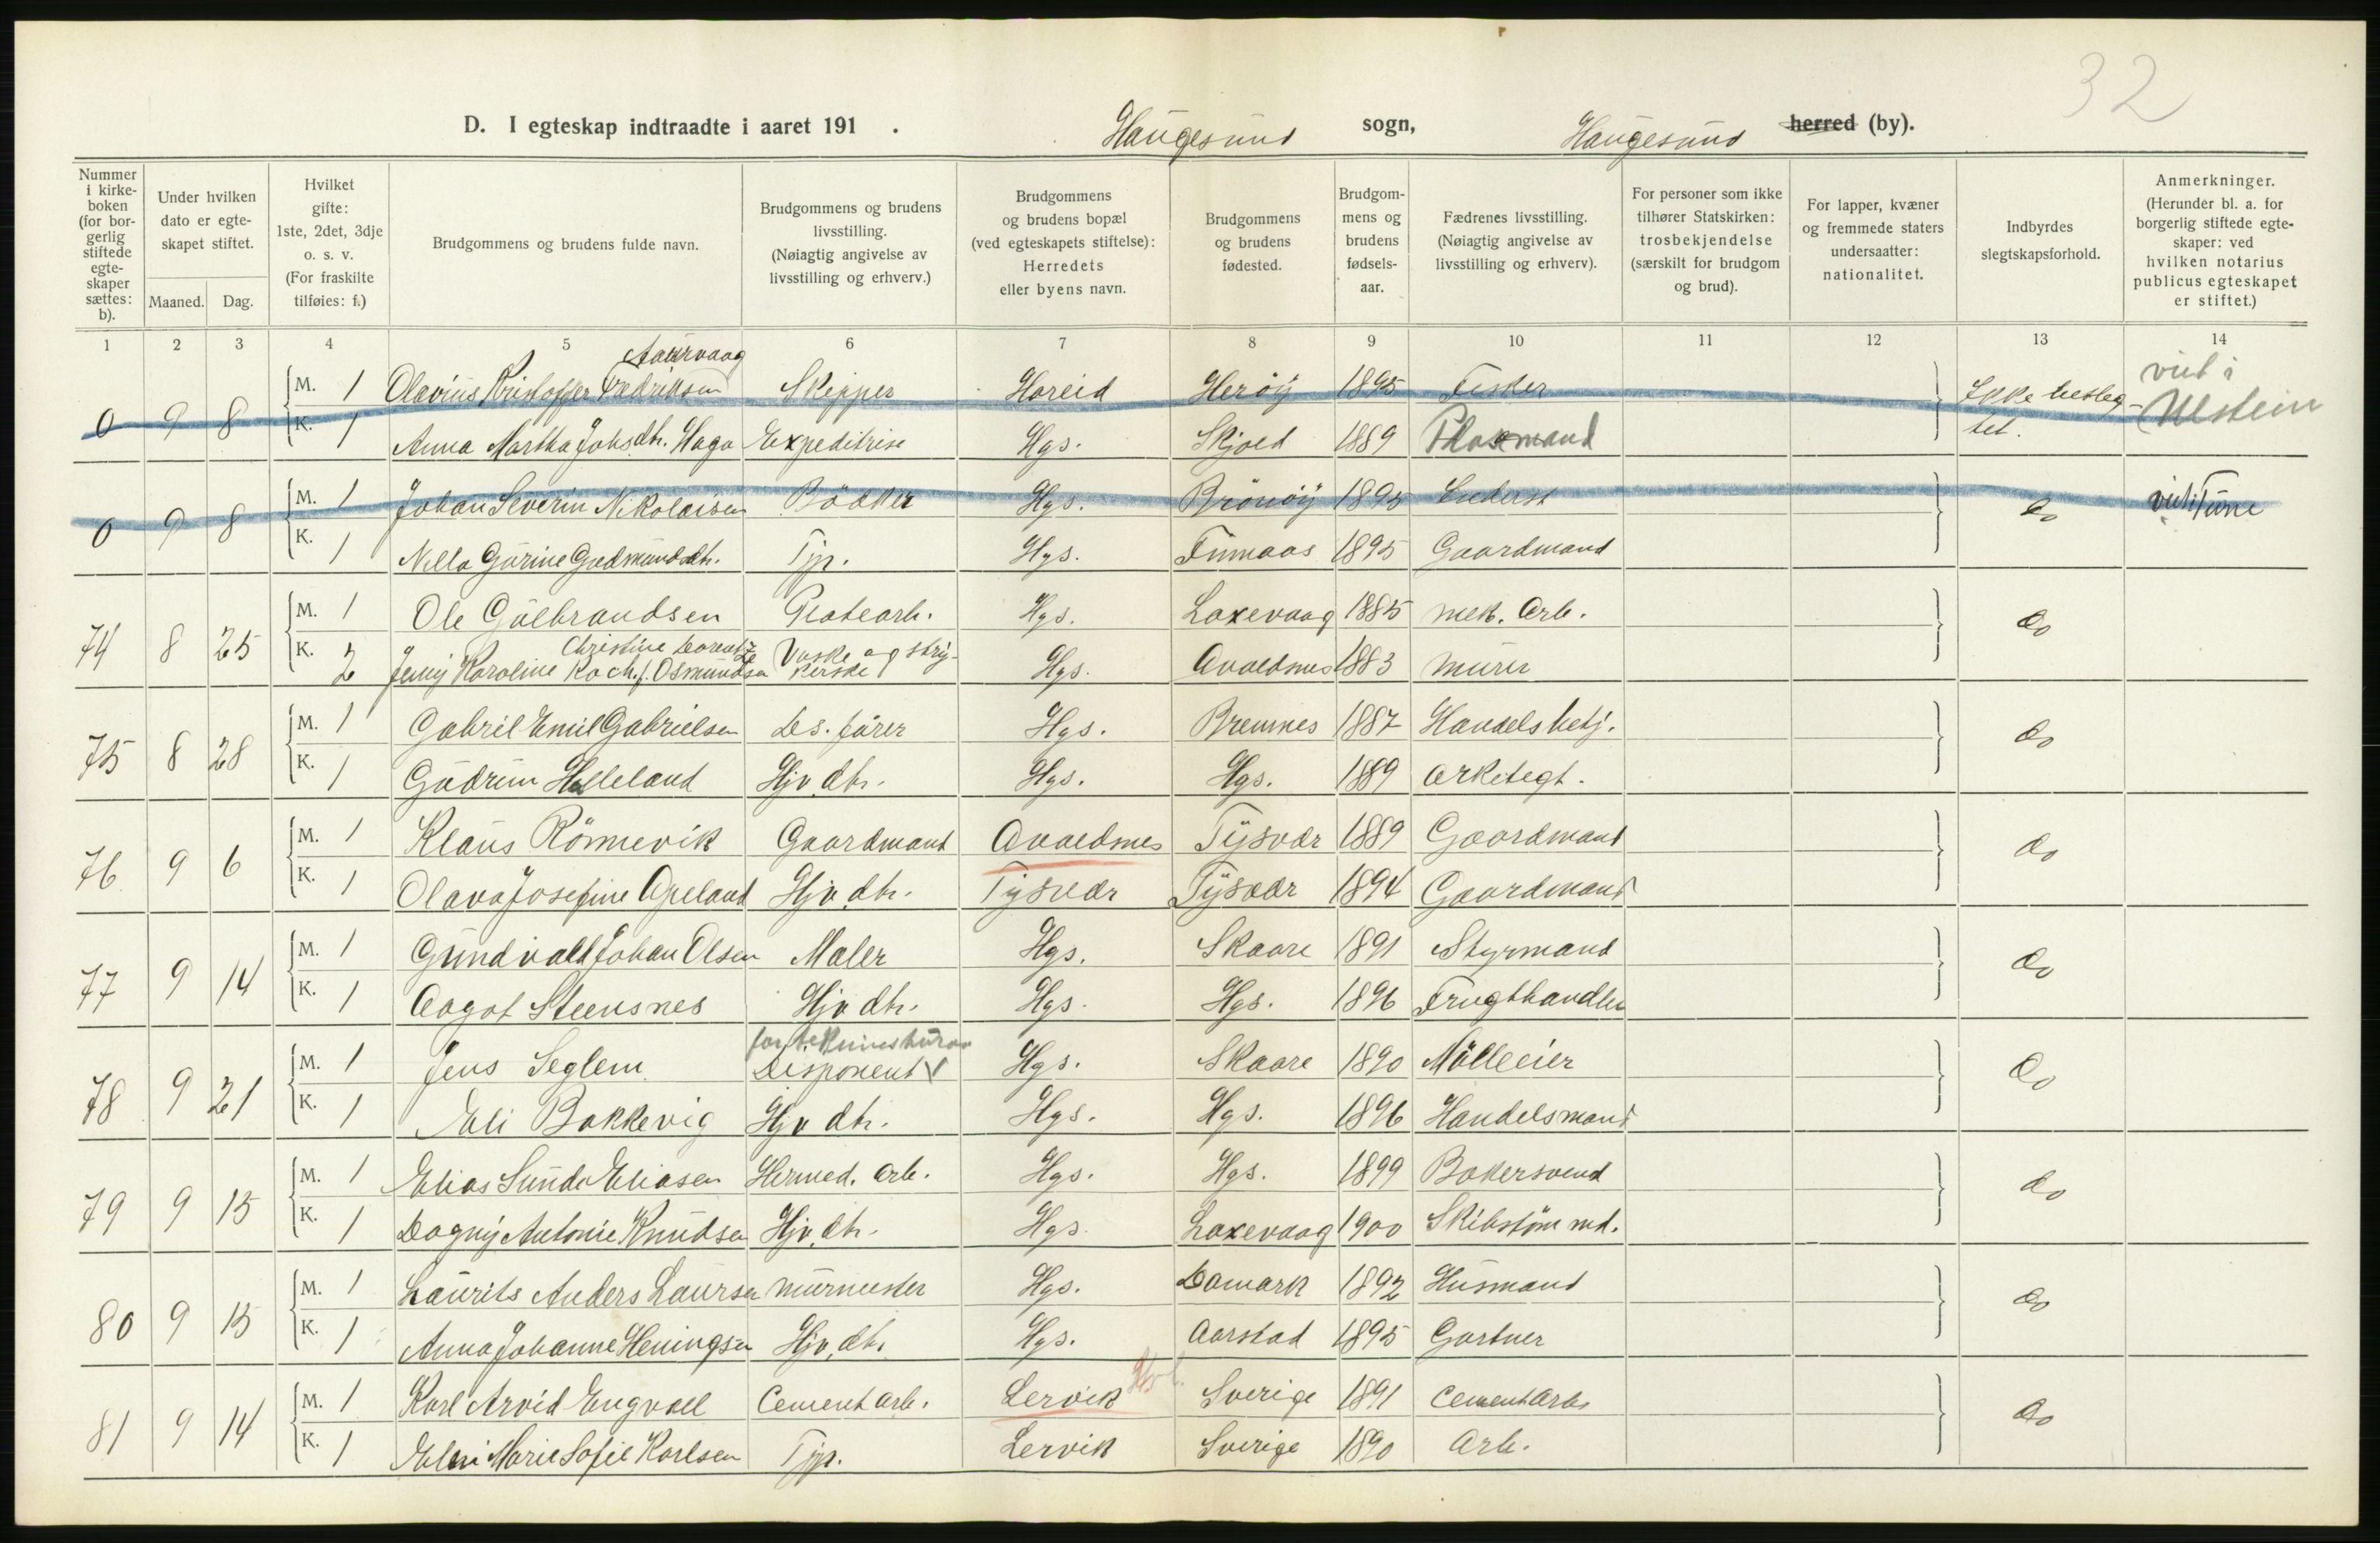 32
D. I egteskap indtraadte i aaret 191 . Haugesund sogn, Haugesund herred (by).
Nummer i kirkeboken (for borgerlig stiftede egteskaper sættes: b).
Under hvilken dato er egteskapet stiftet.
Maaned. Dag.
Hvilket gifte: 1ste, 2det, 3dje o. s. v. (For fraskilte tilføies: f.)
Brudgommens og brudens fulde navn.
Brudgommens og brudens livsstilling. (Nøiagtig angivelse av livsstilling og erhverv.)
Brudgommens og brudens bopæl (ved egteskapets stiftelse): Herredets eller byens navn.
Brudgommens og brudens fødested.
Brudgommens og brudens fødselsaar.
Fædrenes livsstilling. (Nøiagtig angivelse av livsstilling og erhverv).
For personer som ikke tilhører Statskirken: trosbekjendelse (særskilt for brudgom og brud).
For lapper, kvæner og fremmede staters undersaatter: nationalitet.
Indbyrdes slegtskapsforhold.
Anmerkninger. (Herunder bl. a. for borgerlig stiftede egteskaper: ved hvilken notarius publicus egteskapet er stiftet.)
1 2 3 4 5 6 7 8 9 10 11 12 13 14
Aaurvaag
0 9 8 M. 1 Olavius Kristoffer Fredriksen Skipper Hareid Herøy 1895 Fisker Ikke beslegtet. viet i Ulstein
K. 1 Anna Martha Johsdtr. Haga Expeditrise Hgs. Skjold 1889
0 9 8 M. 1 Johan Severin Nikolaisen Bödker Hgs. Brönöy 1895 do viet i Tune
K. 1 Nella Gurine Gudmundsdtr. Tjp. Hgs. Finnaas 1895 Gaardmand
74 8 25 M. 1 Ole Gulbrandsen Platearb. Hgs. Laxevaag 1885 mek. Arb. do
K. 2 Jenny Karoline Christine Dorentze Koch f. Osmundsen Vaske og strykerske Hgs. Avaldsnes 1883 murer
75 8 28 M. 1 Gabriel Emil Gabrielsen Ds. förer Hgs. Bremnes 1887 Handelsbetj. do
K. 1 Gudrun Helleland Hjv. dtr. Hgs. Hgs. 1889 Arketegt.
76 9 6 M. 1 Klaus Rönnevik Gaardmand Avaldsnes Tysvær 1889 Gaardmand do
K. 1 Olava Josefine Apeland Hjv. dtr. Tysvær Tysvær 1894 Gaardmand
77 9 14 M. 1 Gundvald Johan Olsen Maler Hgs. Skaare 1891 Styrmand do
K. 1 Aagot Steensnes Hjv dtr. Hgs. Hgs. 1896 Frugthandler
78 9 21 M. 1 Jens Seglem Disponent v Hgs. Skaare 1890 Mölleeier do
K. 1 Eli Bakkevig Hjv dtr. Hgs. Hgs. 1896 Handelsmand
79 9 15 M. 1 Elias Sunde Eliasen Hermed. arb. Hgs. Hgs. 1899 Bakersvend do
K. 1 Dagny Antonie Knudsen Hjv. dtr. Hgs. Laxevaag 1900 Skibstöm md.
80 9 15 M. 1 Laurits Anders Laursen murmester Hgs. Damark 1892 Husmand do
K. 1 Anna Johanne Heningsen Hjv. dtr. Hgs. Aarstad 1895 Gartner
81 9 14 M. 1 Karl Arvid Engvall Cement arb. Lervik Sverige 1891 Cementarb. do
K. 1 Elni Marie Sofie Karlsen Tjp. Lervik Sverige 1890 Arb.